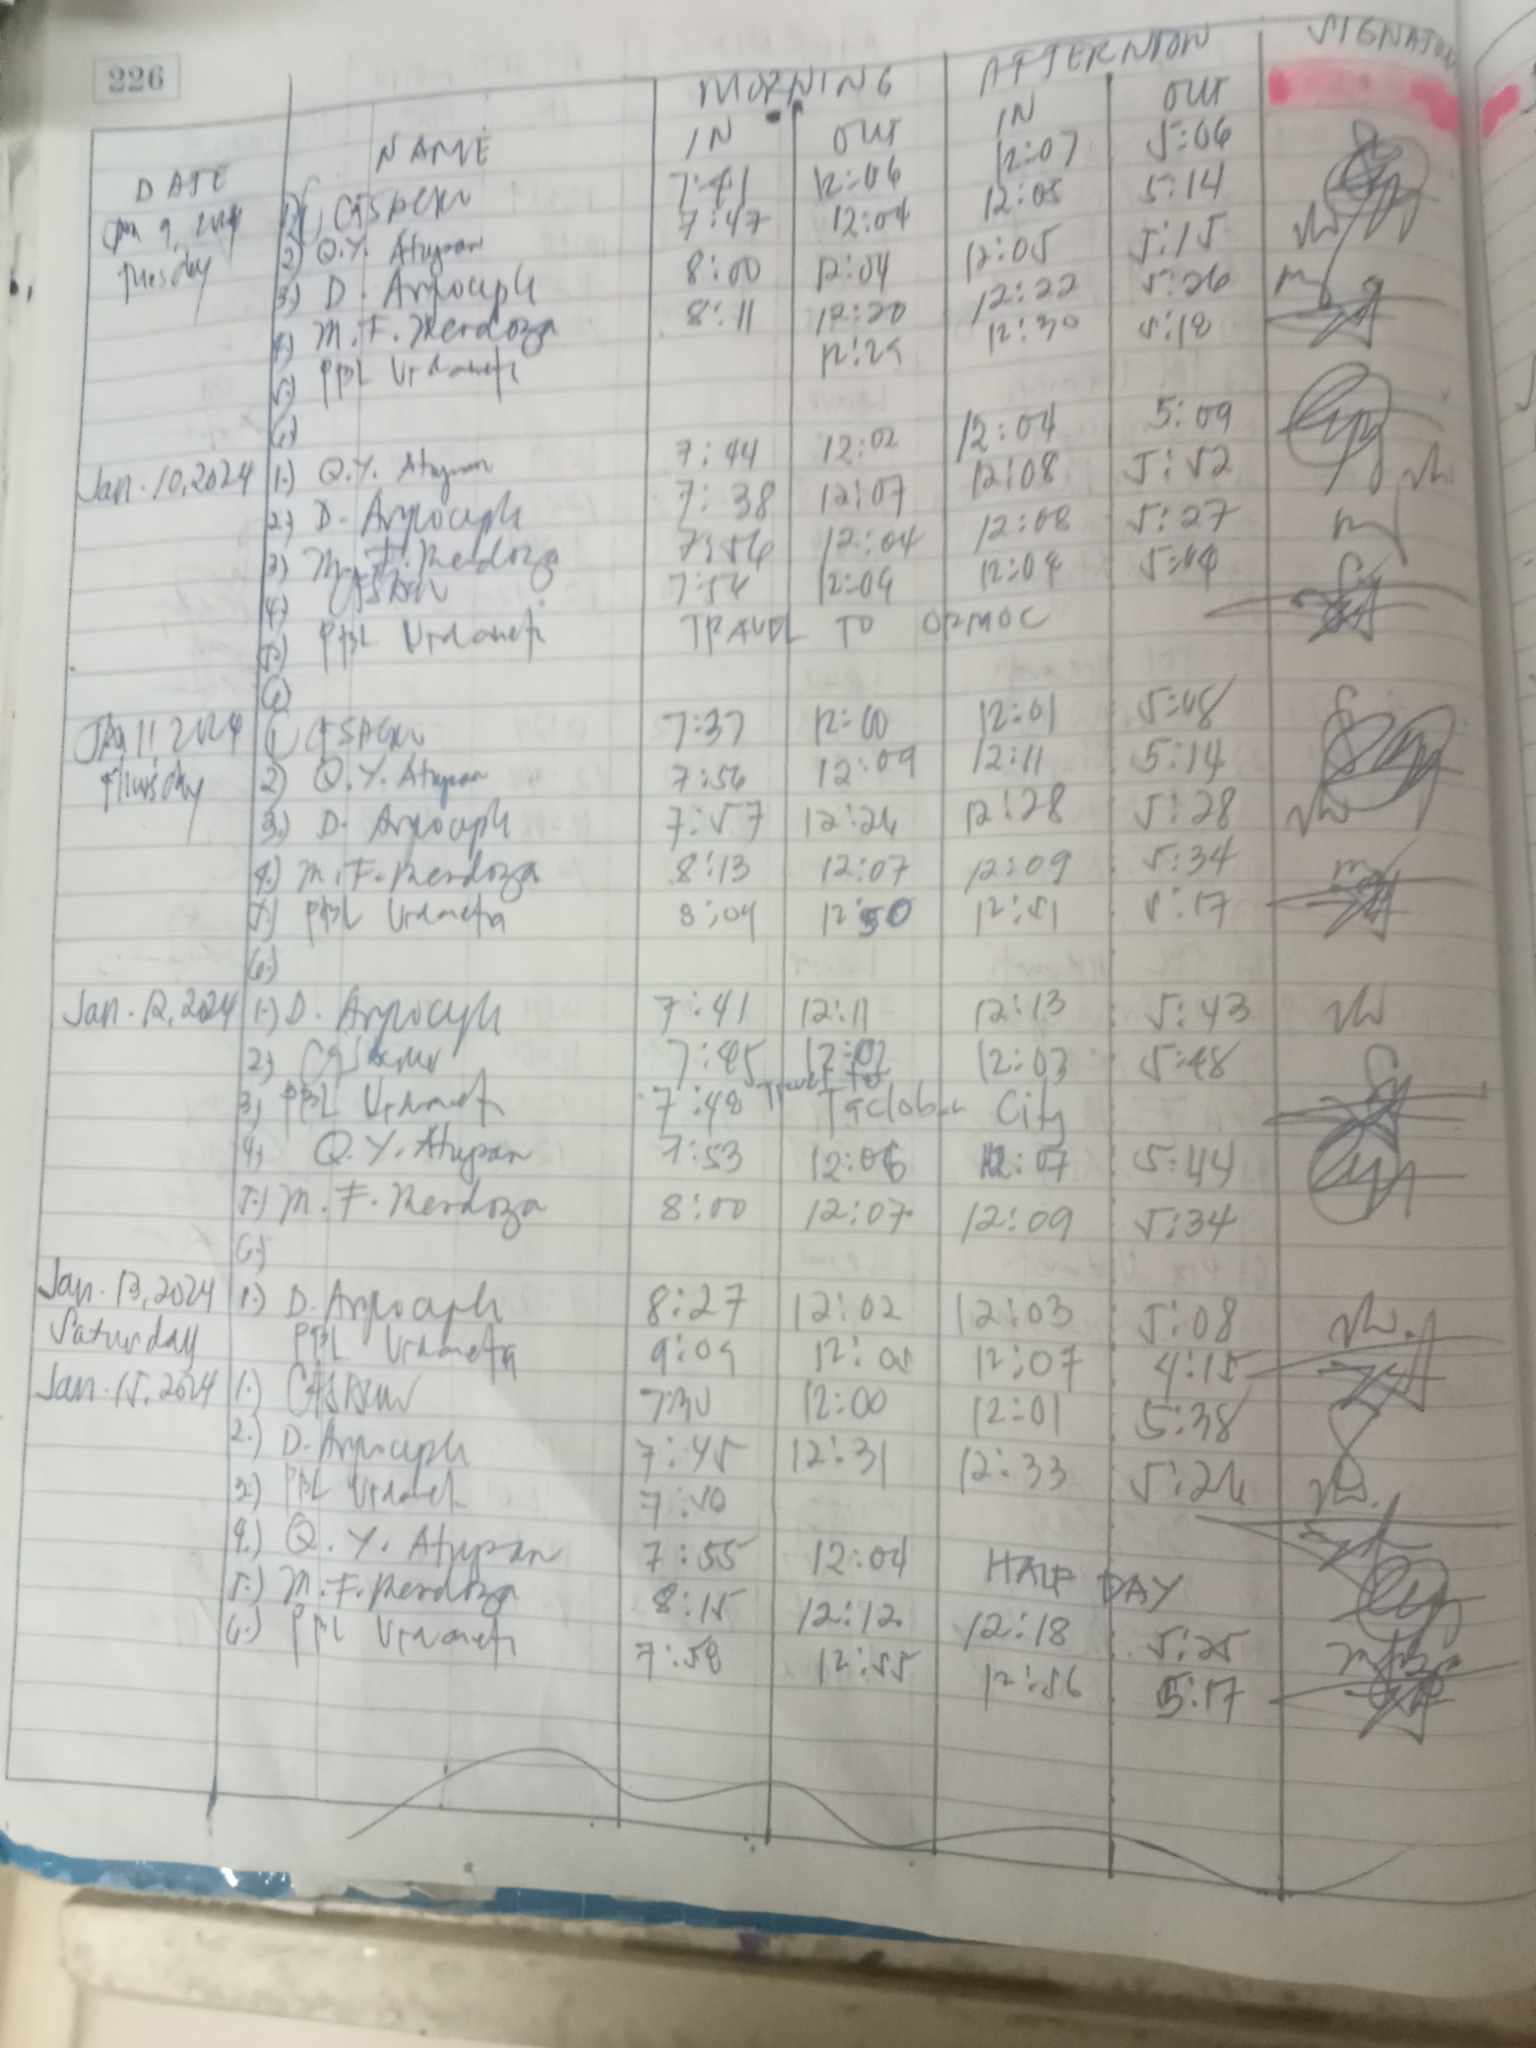 226
MORNING AFTERNOON SIGNATURE
DATE NAME IN OUT IN OUT
Jan 9, 2024 1) 7:41 12:06 12:07 5:06
Tuesday 2) Q.Y. Atupan 7:47 12:04 12:05 5:14
3) D. 8:00 12:04 12:05 5:15
4) M. F. Mendoza 8:11 12:20 12:22 5:26
5) PBL Urdaneta 12:29 12:30 5:18
6)
Jan. 10, 2024 1.) Q.Y. Atupan 7:44 12:02 12:04 5:09
2) D. 7:38 12:07 12:08 5:52
3) M. F. Mendoza 7:56 12:04 12:08 5:27
4) 12:04
5.) PBL Urdaneta TRAVEL TO ORMOC
6)
Jan 11 2024 1) 7:37 12:00 12:01 5:08
Thursday 2) Q.Y. Atupan 7:56 12:09 12:11 5:14
3.) D. 7:57 12:26 12:28 5:28
4.) M. F. Mendoza 8:13 12:07 12:09 5:34
5.) PBL Urdaneta 8:04 12:50 12:51 5:17
6.)
Jan. 12, 2024 1.) D. 7:41 12:11 12:13 5:43
2) 7:45 12:02 12:03 5:48
3) PBL Urdaneta 7:48 Travel to Tacloban City
4) Q.Y. Atupan 7:53 12:06 12:07 5:44
5.) M. F. Mendoza 8:00 12:07 12:09 5:34
6.)
Jan. 13, 2024 1.) D. 8:27 12:02 12:03 5:08
Saturday PBL Urdaneta 9:09 12:07 4:15
Jan. 15, 2024 1.) 7:30 12:00 12:01 5:38
2.) D. 7:45 12:31 12:33 5:26
3) PBL Urdaneta
4.) Q.Y. Atupan 7:55 12:04 HALF DAY
5.) M. F. Mendoza 8:15 12:12 12:18 5:25
6.) PBL Urdaneta 7:58 12:55 12:56 5:17